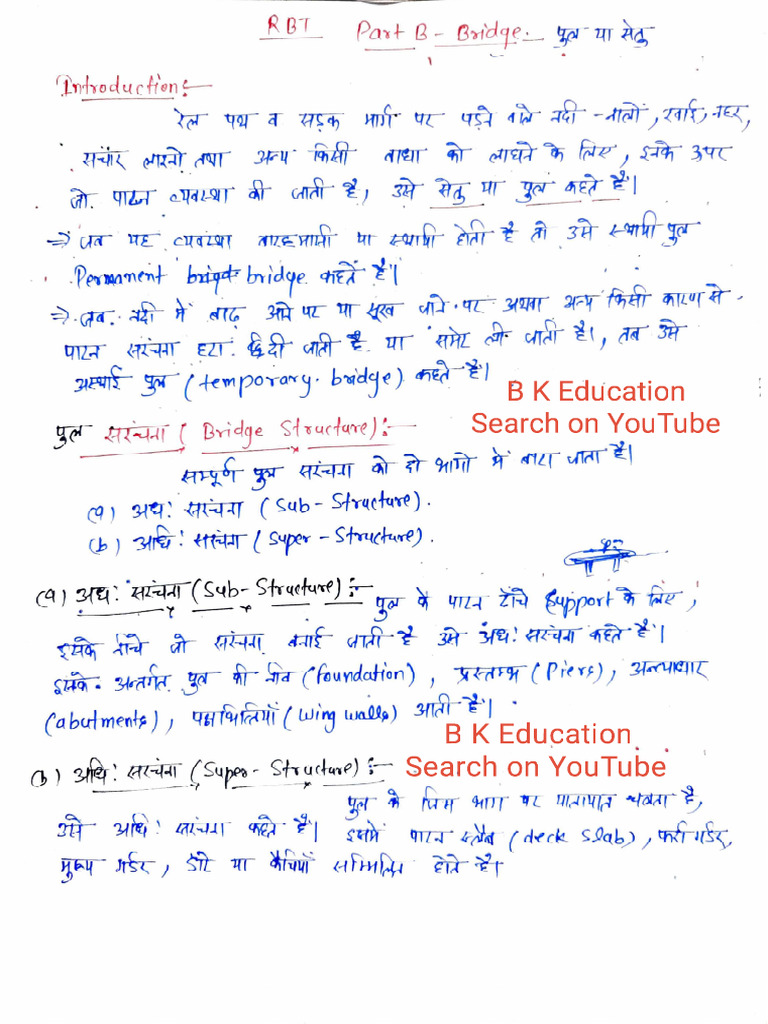 RBT Part B - Bridge. पुल या सेतु
Introduction:-
रेल पथ व सड़क मार्ग पर पड़ने वाले नदी-नालों, खाई, नहर,
संचार लाइनो तथा अन्य किसी बाधा को लाघने के लिए, इनके ऊपर
जो पाटन व्यवस्था की जाती है, उसे सेतु या पुल कहते है।
⇒ जब यह व्यवस्था बारहमासी या स्थायी होती है तो उसे स्थायी पुल
Permanent bridge कहते है।
⇒ जब नदी में बाढ़ आने पर या सूख जाने पर अथवा अन्य किसी कारण से
पाटन सरंचना हटा दी जाती है या समेट ली जाती है।, तब उसे
अस्थाई पुल (temporary bridge) कहते है।
B K Education
Search on YouTube
पुल सरंचना (Bridge Structure):-
सम्पूर्ण पुल सरंचना को दो भागो में बाटा जाता है।
(a) अध: सरंचना (Sub-Structure).
(b) अधि: सरंचना (Super-Structure).
(a) अध: सरंचना (Sub-Structure):- पुल के पाटन ढाँचे Support के लिए,
इसके नीचे जो सरंचना बनाई जाती है उसे अध: सरंचना कहते है।
इसके अन्तर्गत पुल की नीव (foundation), प्रस्तम्भ (Piers), अन्त्याधार
(abutments), पक्षभित्तियाँ (wing walls) आती है।
B K Education
(b) अधि: सरंचना (Super-Structure):- Search on YouTube
पुल के जिस भाग पर यातायात चलता है,
उसे अधि: सरंचना कहते है। इसमें पाटन स्लैब (deck slab), फर्श गर्डर,
मुख्य गर्डर, डाटे या कैंचियाँ सम्मिलित होते है।